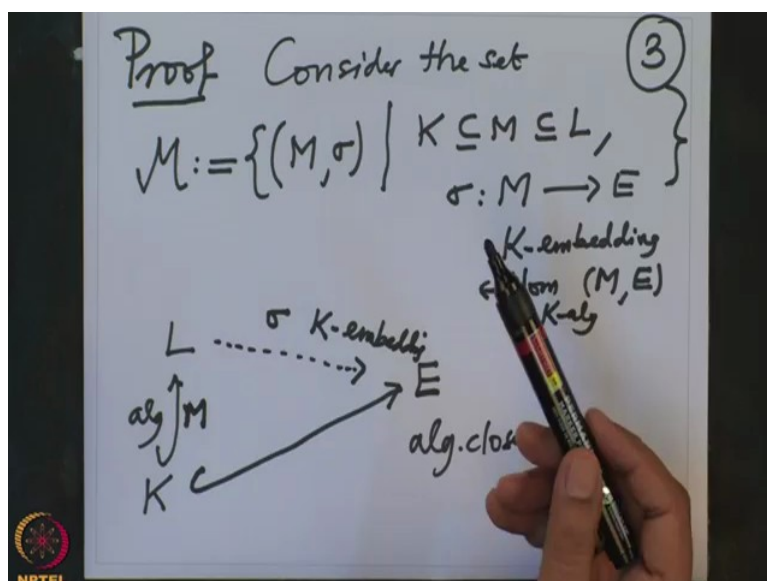 Proof Consider the set
3
M := {(M, σ) | K ⊆ M ⊆ L,
σ : M ⟶ E }
K-embedding
(M, E)
K-alg
σ K-embeddig
L
E
alg M
K
NPTEL